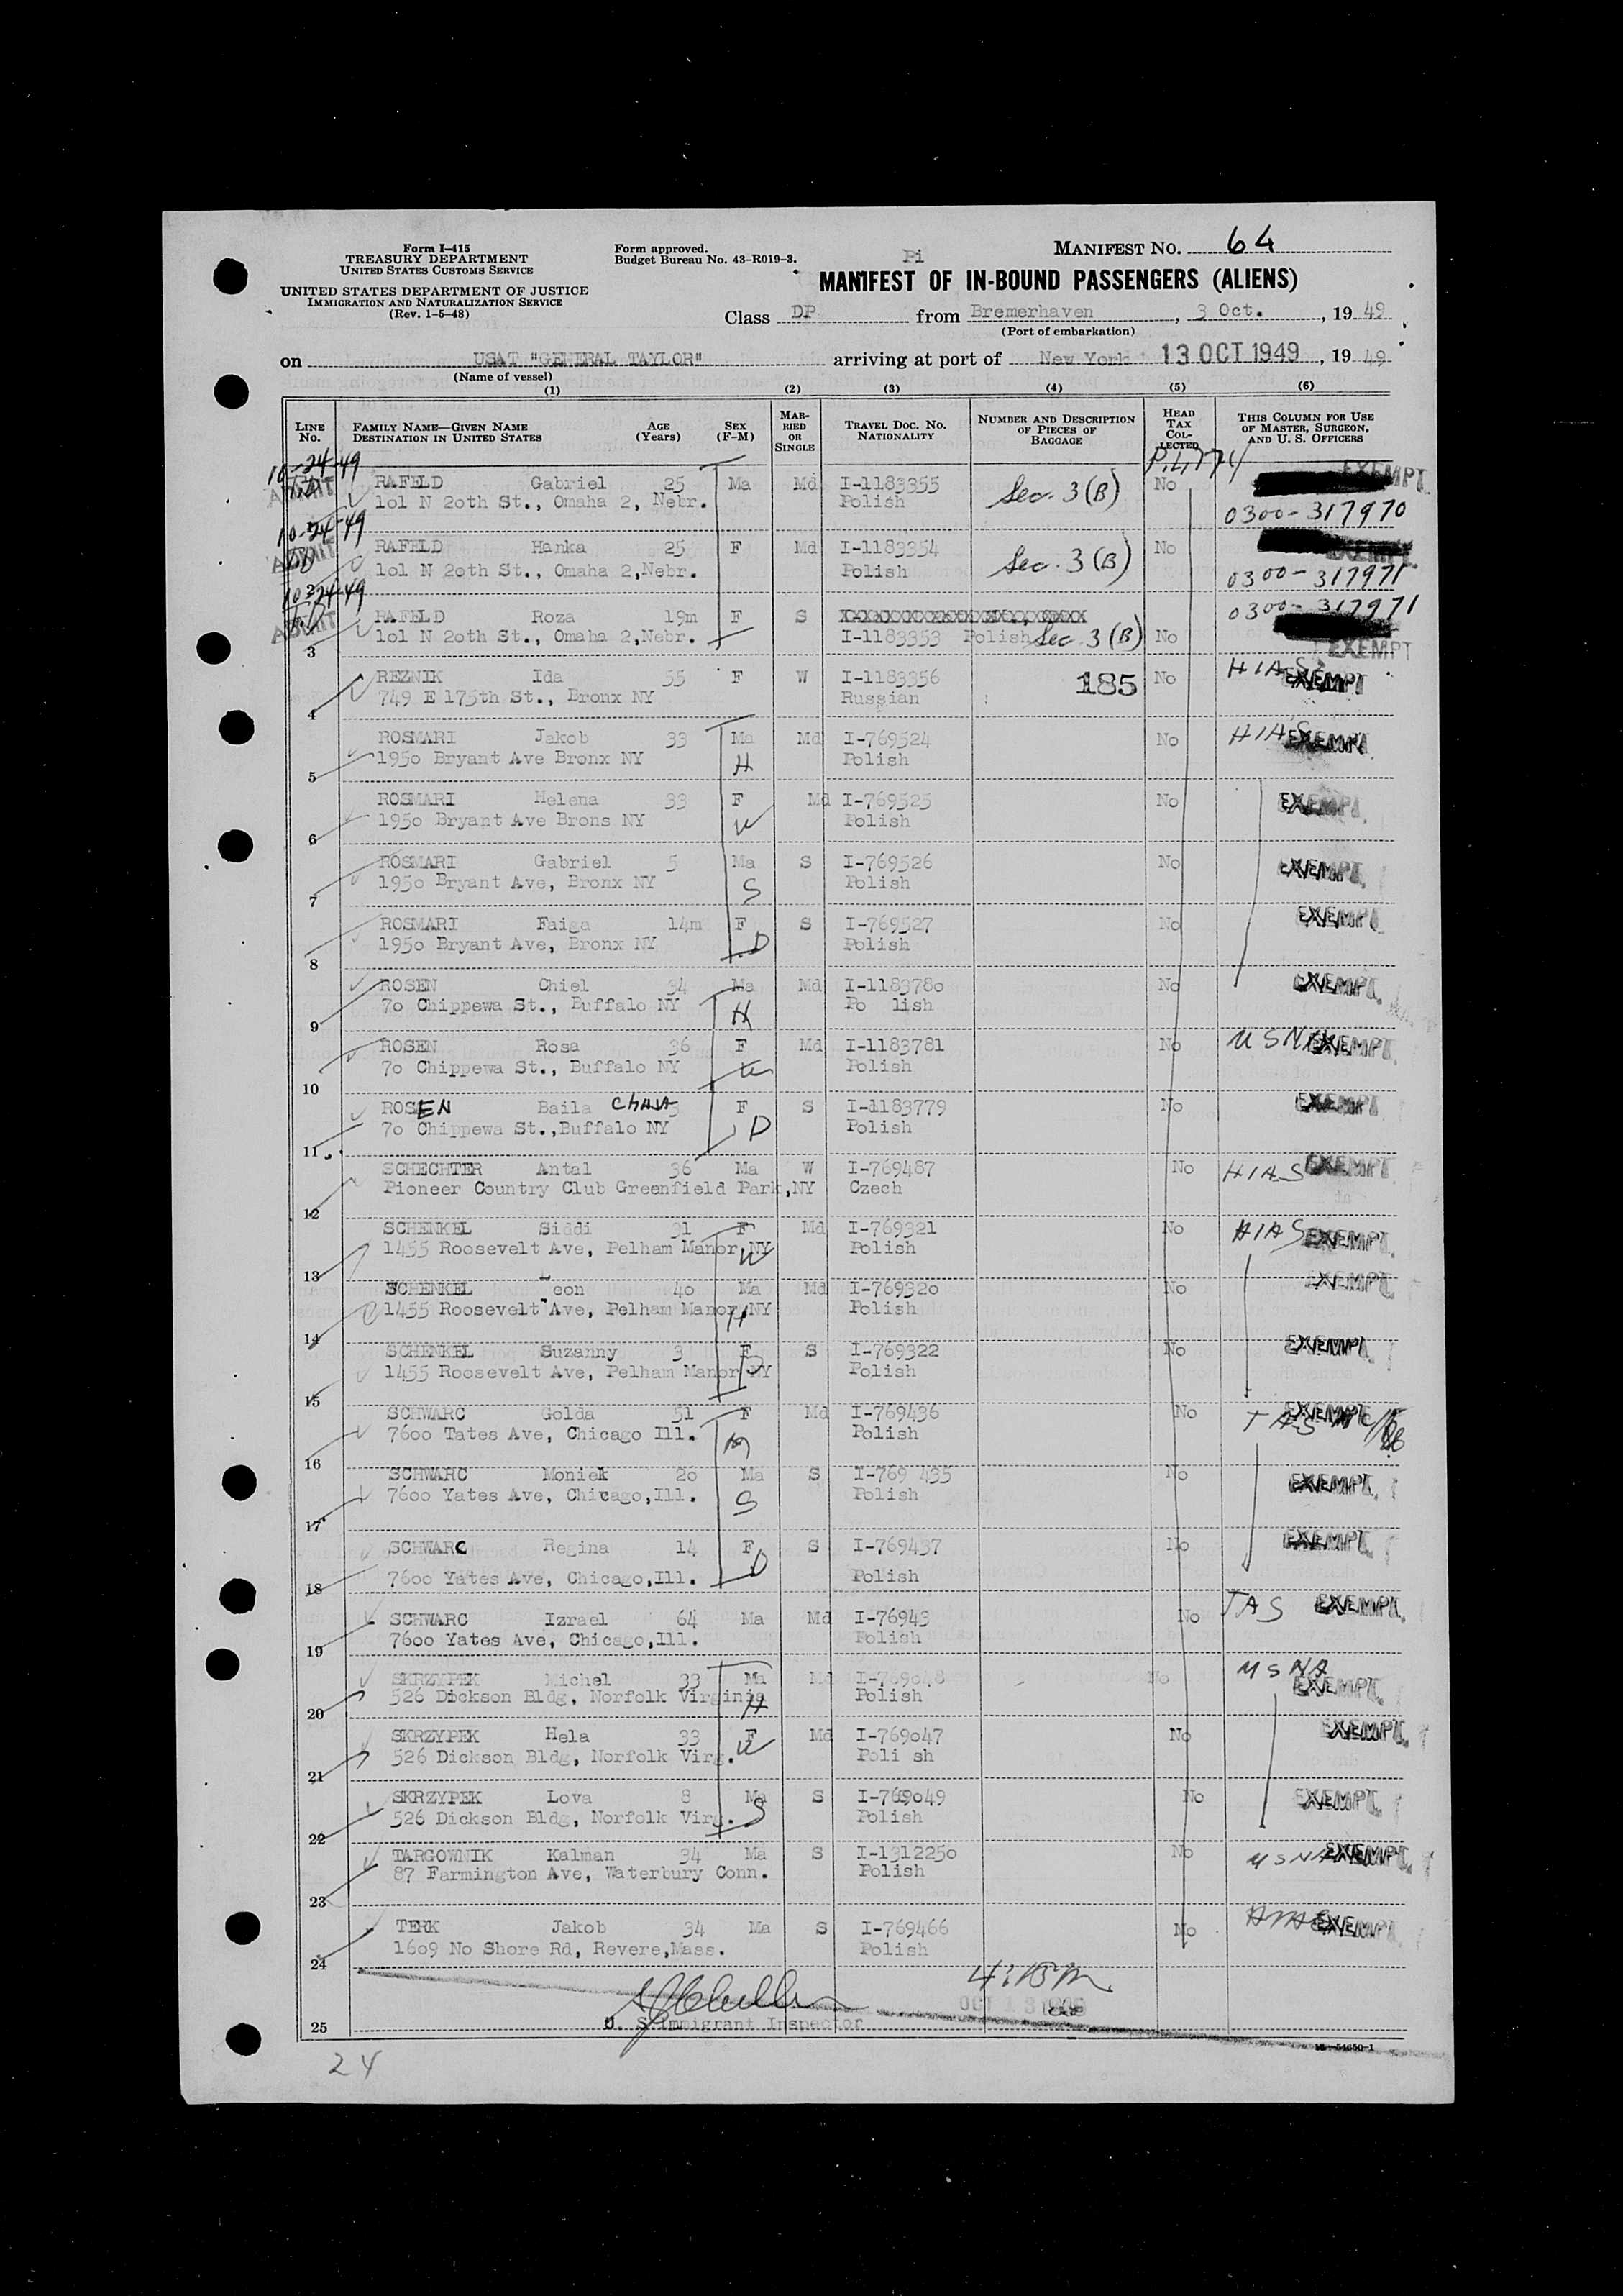 Form I-415
TREASURY DEPARTMENT
UNITED STATES CUSTOMS SERVICE
UNITED STATES DEPARTMENT OF JUSTICE
IMMIGRATION AND NATURALIZATION SERVICE
(Rev. 1-5-48)
Form approved.
Budget Bureau No. 43-R019-3.
Pi
MANIFEST NO. 64
MANIFEST OF IN-BOUND PASSENGERS (ALIENS)
Class DP from Bremerhaven, 3 Oct., 19 49
(Port of embarkation)
on USAT "GENERAL TAYLOR" arriving at port of New York 13 OCT 1949, 19 49
(Name of vessel)
(1) (2) (3) (4) (5) (6)
LINE NO. FAMILY NAME—GIVEN NAME DESTINATION IN UNITED STATES AGE (Years) SEX (F-M) MARRIED OR SINGLE TRAVEL DOC. NO. NATIONALITY NUMBER AND DESCRIPTION OF PIECES OF BAGGAGE HEAD TAX COLLECTED THIS COLUMN FOR USE OF MASTER, SURGEON, AND U. S. OFFICERS
P.L. 774
10-24-49 ADMIT RAFELD Gabriel 25 Ma Md I-1183355 Sec. 3(B) No EXEMPT
1o1 N 2oth St., Omaha 2, Nebr. Polish 0300-317970
10-24-49 ADMIT RAFELD Hanka 25 F Md I-1183354 Sec. 3(B) No EXEMPT
2 1o1 N 2oth St., Omaha 2,Nebr. Polish 0300-317971
10-24-49 ADMIT RAFELD Roza 19m F S 0300-317971
3 1o1 N 2oth St., Omaha 2,Nebr. I-1183353 Polish Sec. 3(B) No EXEMPT
REZNIK Ida 55 F W I-1183356 185 No HIAS EXEMPT
4 749 E 175th St., Bronx NY Russian
ROSMARI Jakob 33 Ma Md I-769524 No HIAS EXEMPT
5 195o Bryant Ave Bronx NY H Polish
ROSMARI Helena 33 F Md I-769525 No EXEMPT
6 195o Bryant Ave Brons NY W Polish
ROSMARI Gabriel 5 Ma S I-769526 No EXEMPT
7 195o Bryant Ave, Bronx NY S Polish
ROSMARI Faiga 14m F S I-769527 No EXEMPT
8 195o Bryant Ave, Bronx NY D Polish
ROSEN Chiel 34 Ma Md I-118378o No EXEMPT
9 7o Chippewa St., Buffalo NY H Po lish
ROSEN Rosa 36 F Md I-1183781 No USNA EXEMPT
10 7o Chippewa St., Buffalo NY W Polish
ROSEN Baila CHAJA 3 F S I-1183779 No EXEMPT
11 7o Chippewa St.,Buffalo NY D Polish
SCHECHTER Antal 36 Ma W I-769487 No HIAS EXEMPT
12 Pioneer Country Club Greenfield Park,NY Czech
SCHENKEL Siddi 31 F Md I-769321 No HIAS EXEMPT
13 1455 Roosevelt Ave, Pelham Manor NY W Polish
SCHENKEL Leon 4o Ma Md I-76932o No EXEMPT
14 1455 Roosevelt Ave, Pelham Manor NY H Polish
SCHENKEL Suzanny 3 F S I-769322 No EXEMPT
15 1455 Roosevelt Ave, Pelham Manor NY D Polish
SCHWARC Golda 51 F Md I-769436 No EXEMPT
16 76oo Tates Ave, Chicago Ill. M Polish
SCHWARC Moniek 2o Ma S I-769 435 No EXEMPT
17 76oo Yates Ave, Chicago,Ill. S Polish
SCHWARC Regina 14 F S I-769437 No EXEMPT
18 76oo Yates Ave, Chicago,Ill. D Polish
SCHWARC Izrael 64 Ma Md I-76943 No JAS EXEMPT
19 76oo Yates Ave, Chicago,Ill. Polish
SKRZYPEK Michel 33 Ma Md I-769o48 No USNA EXEMPT
20 526 Dickson Bldg, Norfolk Virginia H Polish
SKRZYPEK Hela 33 F Md I-769o47 No EXEMPT
21 526 Dickson Bldg, Norfolk Virg. W Poli sh
SKRZYPEK Lova 8 Ma S I-769o49 No EXEMPT
22 526 Dickson Bldg, Norfolk Virg. S Polish
TARGOWNIK Kalman 34 Ma S I-131225o No USNA EXEMPT
23 87 Farmington Ave, Waterbury Conn. Polish
TERK Jakob 34 Ma S I-769466 No EXEMPT
24 16o9 No Shore Rd, Revere,Mass. Polish
25 U. S. Immigrant Inspector
24